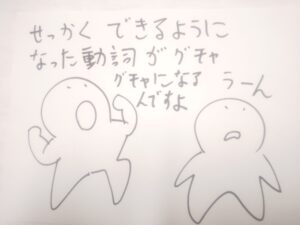 せっかく できるように
なった動詞 が グチャ
グチャになる
んですよ
うーん